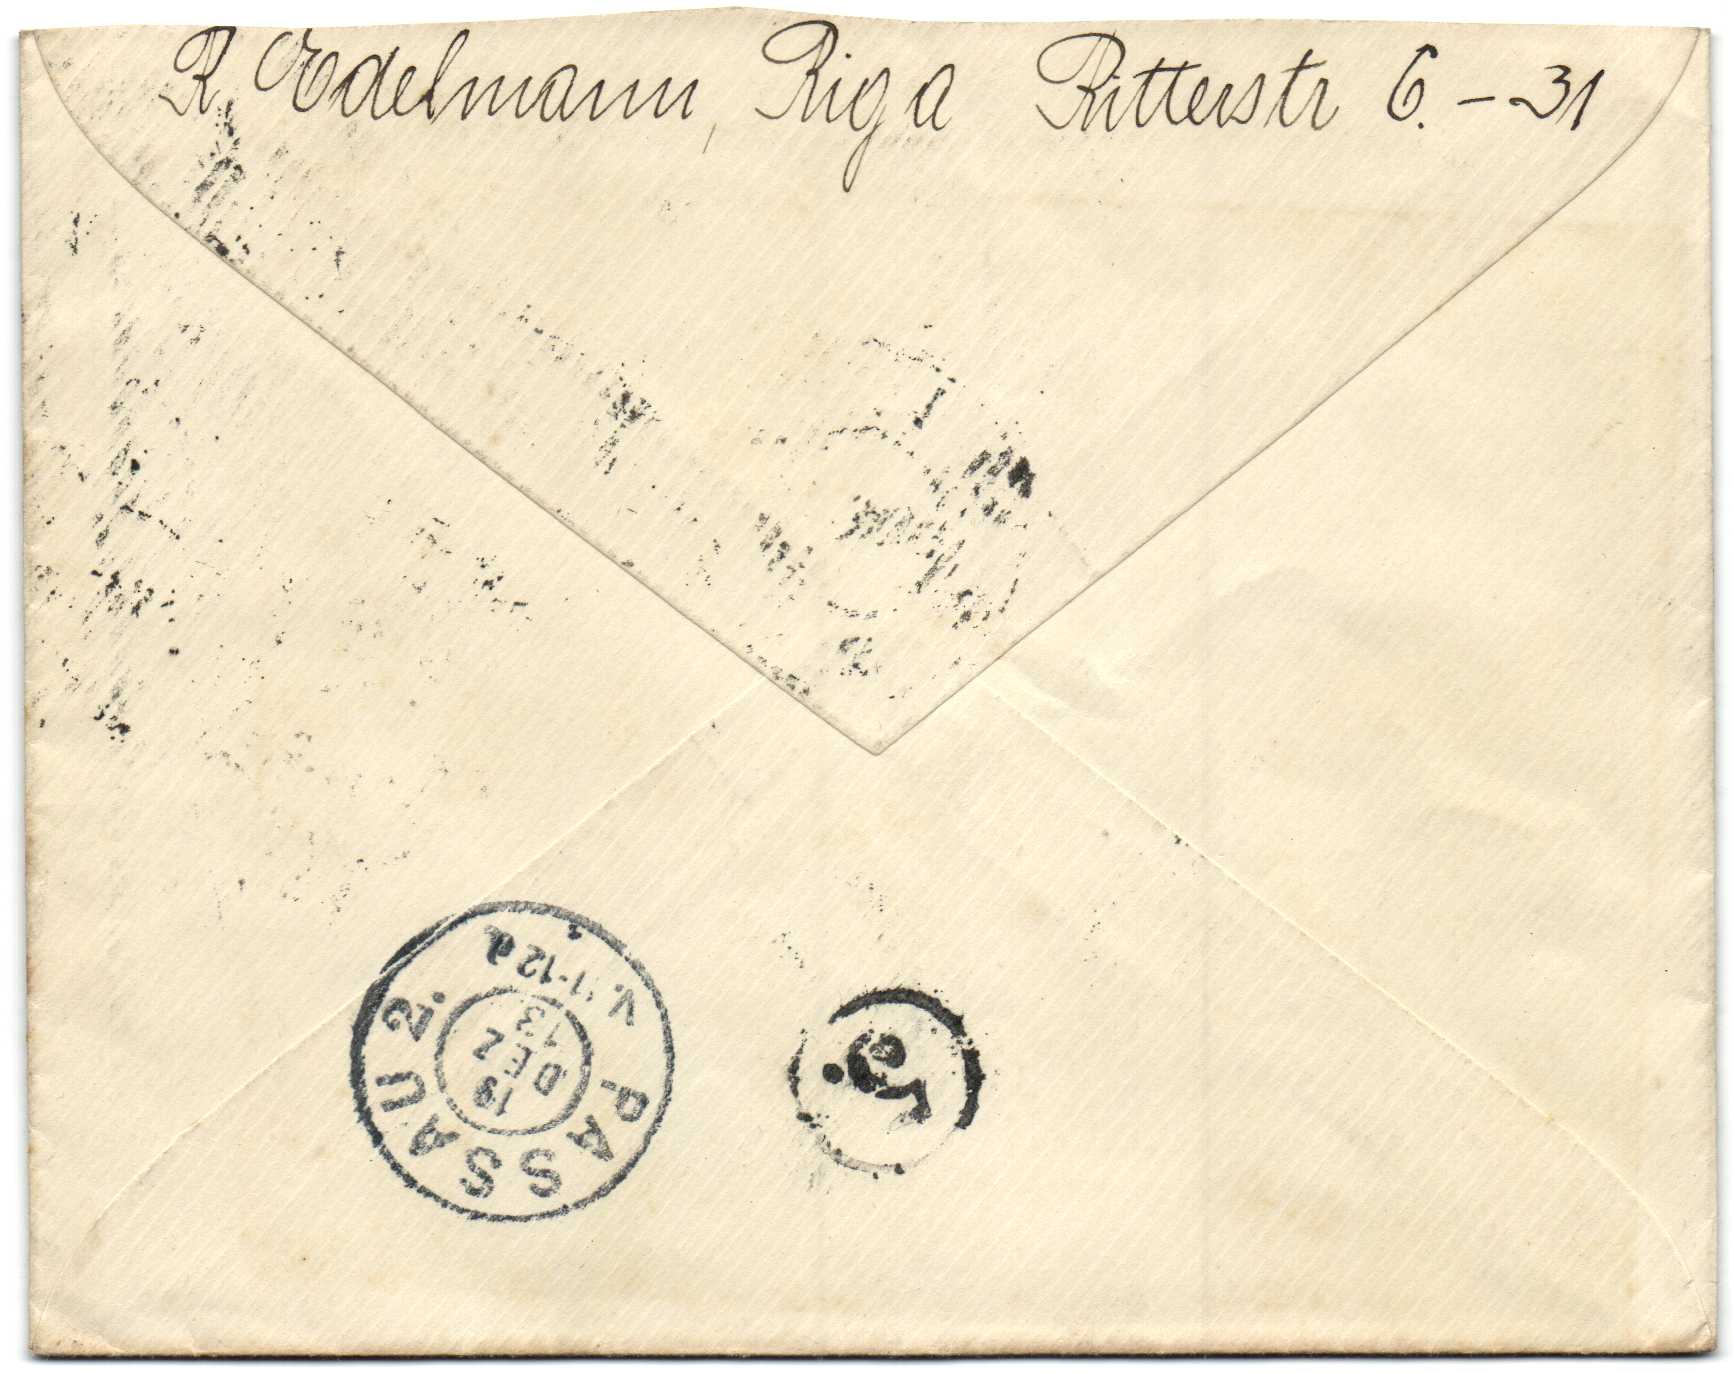 R. Edelmann, Riga Ritterstr 6. – 31
PASSAU 2.
19
DEZ
13
V. 11-12 a